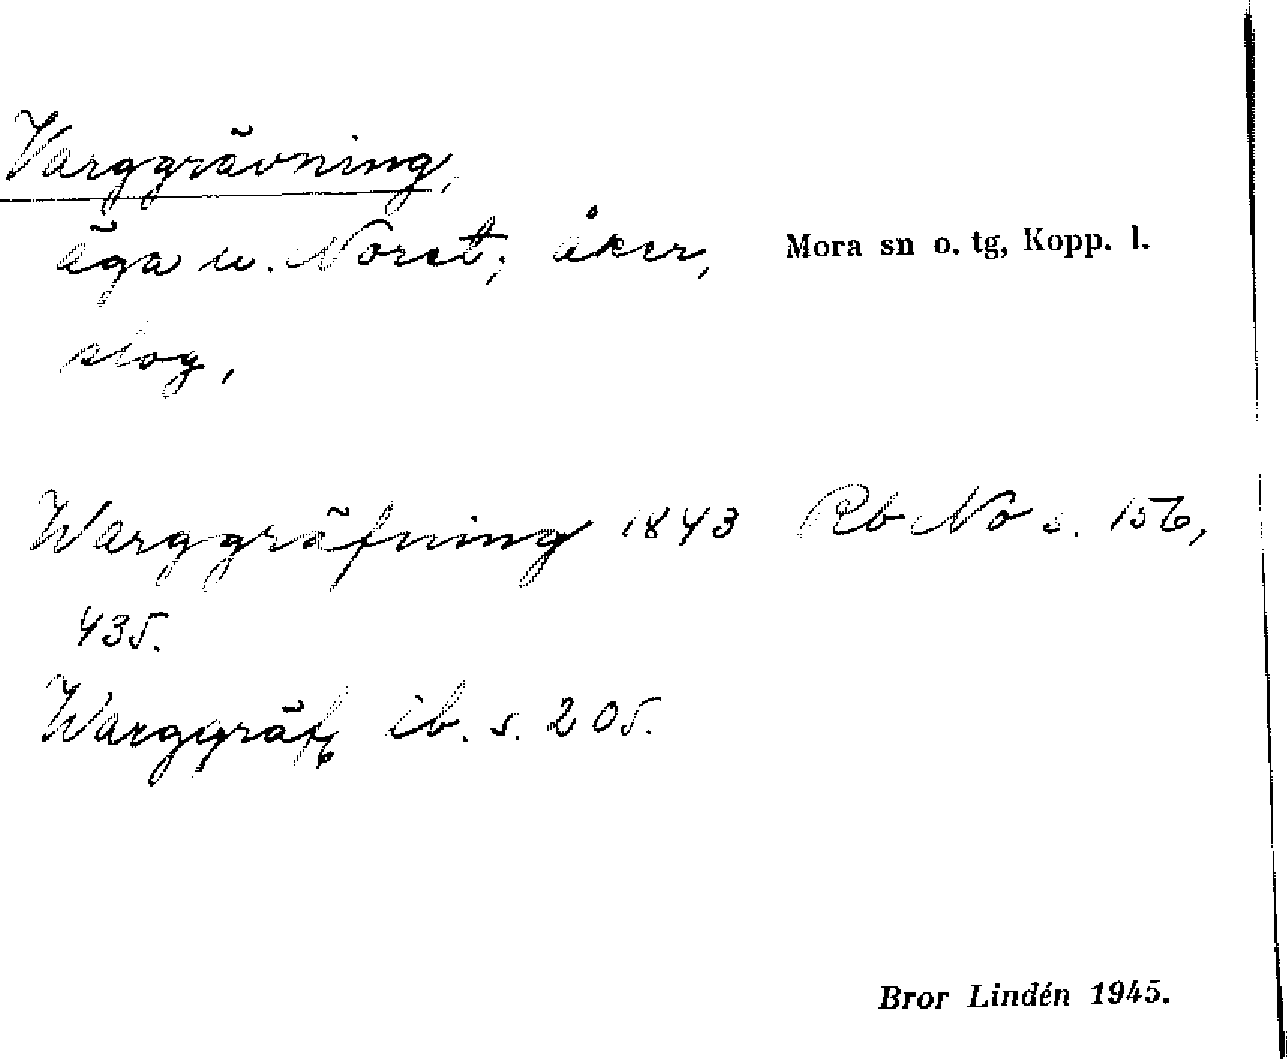 Varggrävning,
äga u. Noret; åker, Mora sn o. tg, Kopp. l.
slog,
Warggräfning 1843 Rb No s. 156,
435.
Warggräf, ib. s. 205.
Bror Lindén 1945.